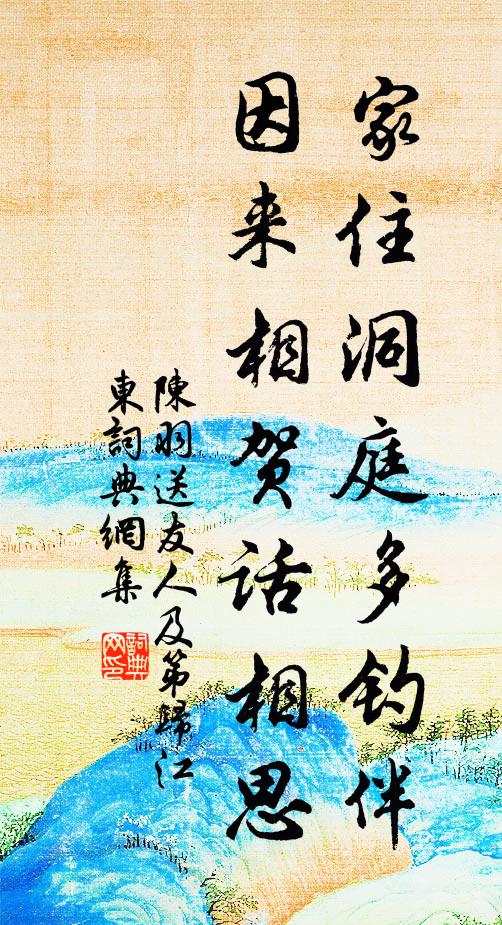 家住洞庭多钓伴
因来相贺话相思
陳羽送友人及第歸江
東詞典網集
詞典
网印